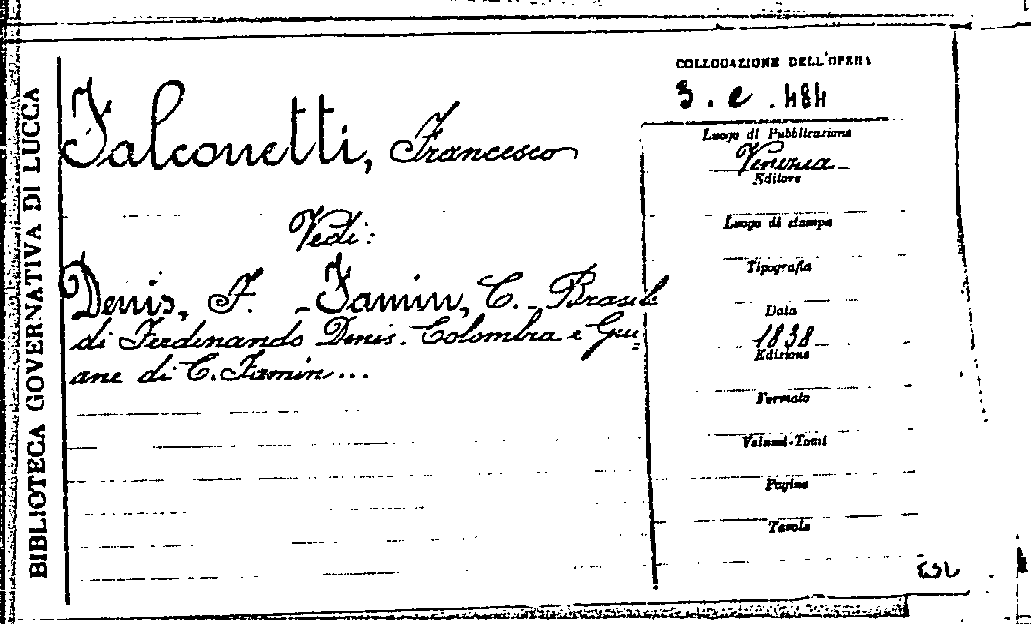 BIBLIOTECA GOVERNATIVA DI LUCCA
COLLOCAZIONE DELL'OPERA
3. e. 484
Falconetti, Francesco
Luogo di Pubblicazione
Venezia
Editore
Vedi:
Luogo di stampa
Tipografia
Denis, F. - Famin, C. - Brasile
di Ferdinando Denis. Colombia e Gui=
ane di C. Famin...
Data
1838
Edizione
Formato
Volumi-Tomi
Pagine
Tavole